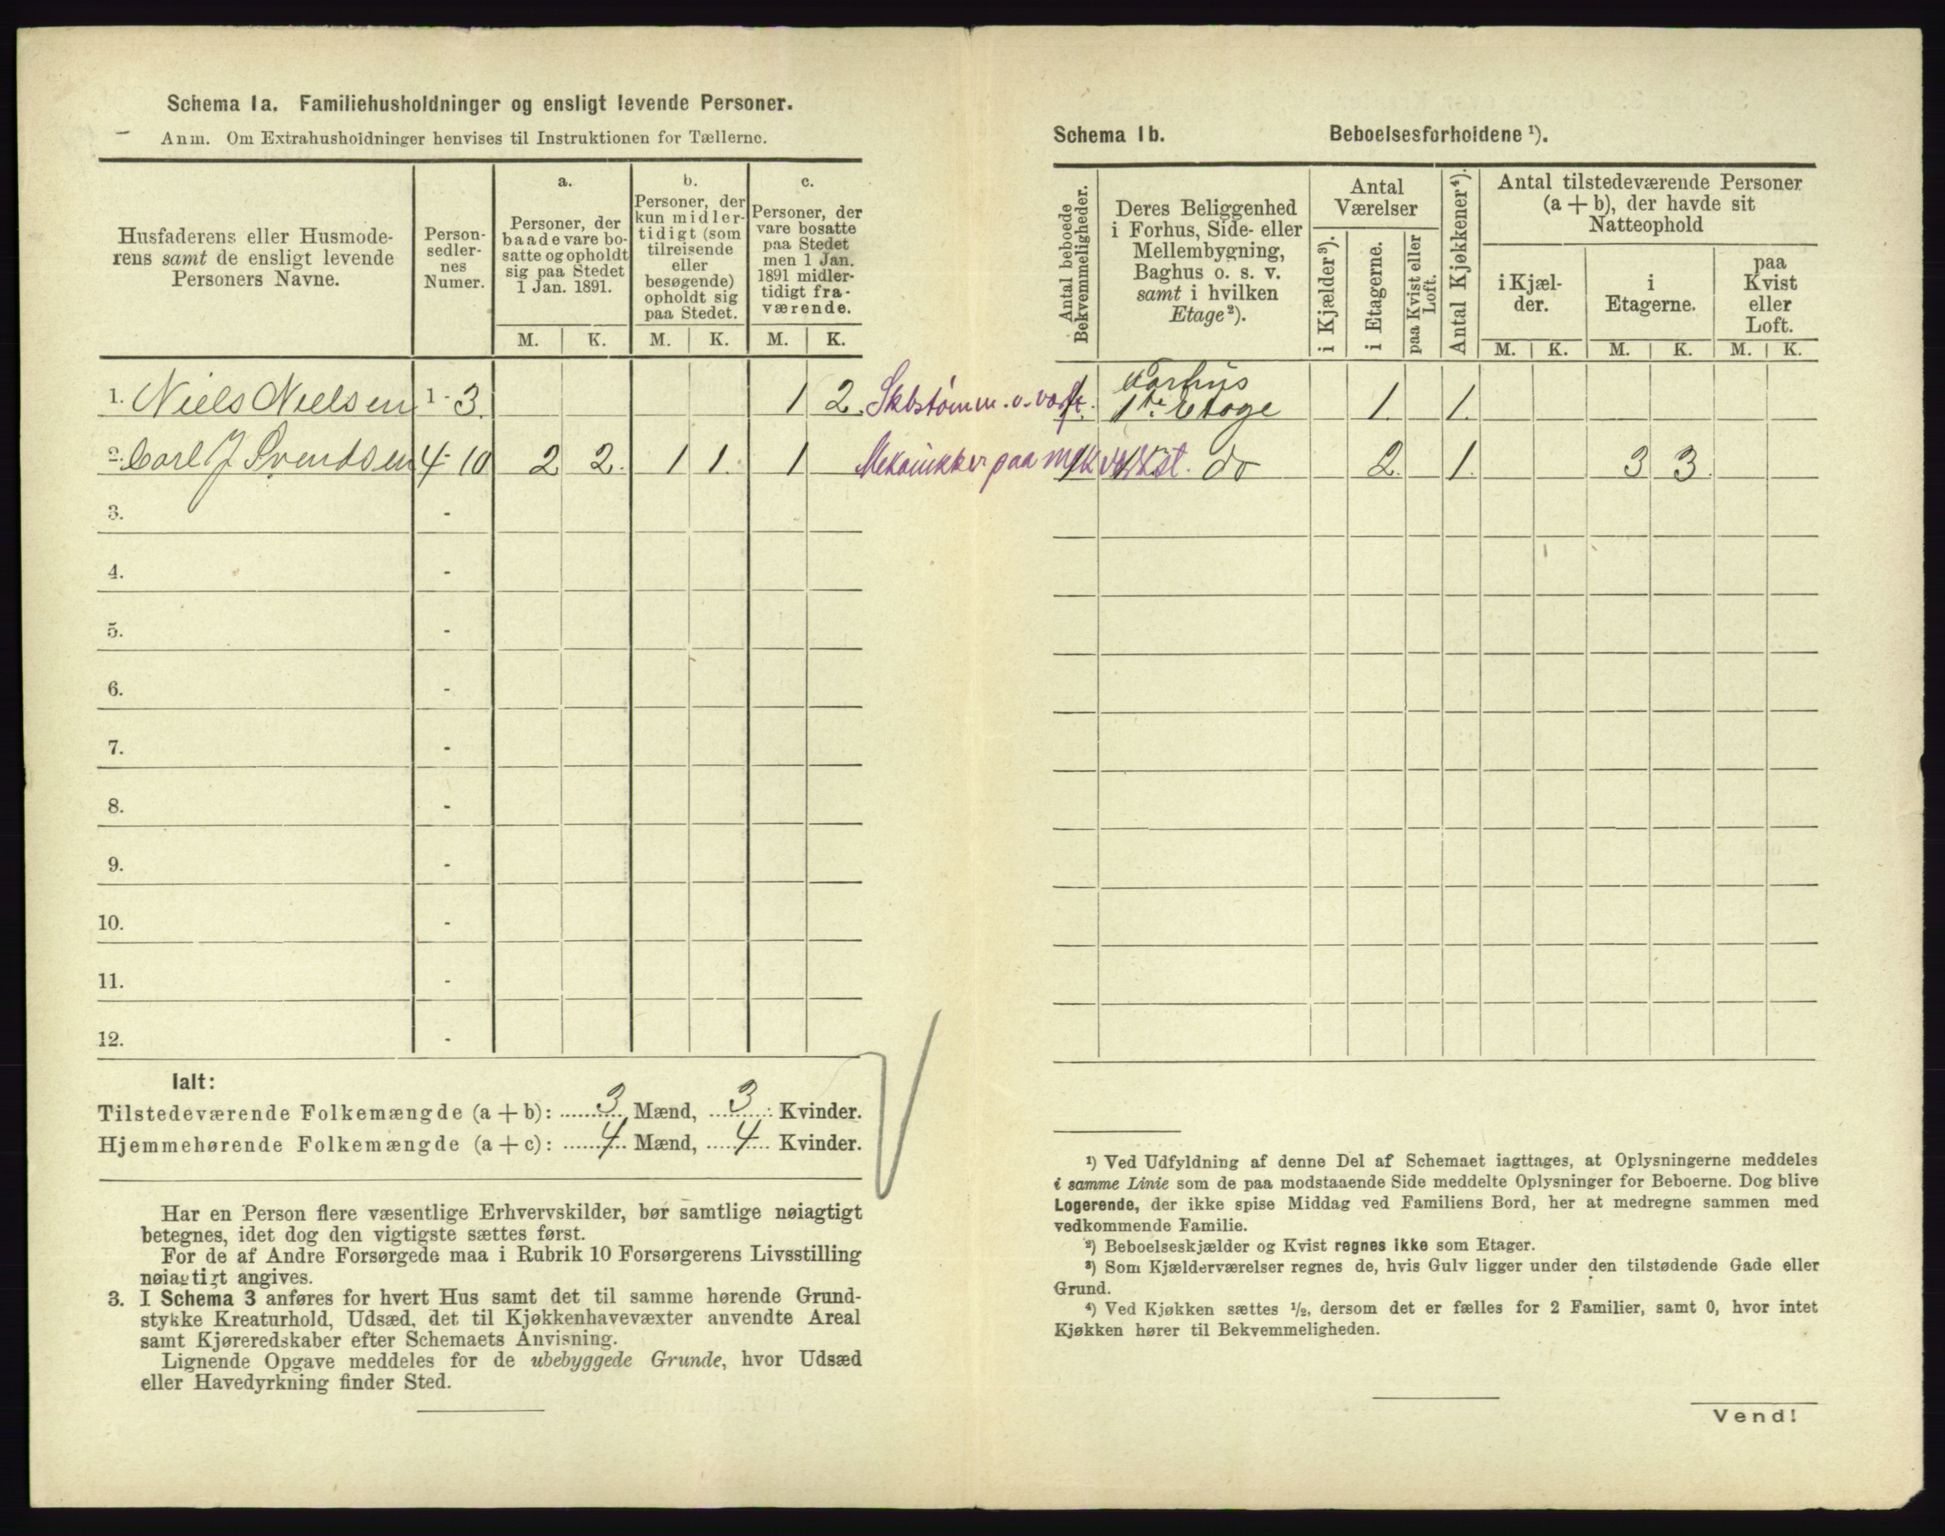 Schema 1a. Familiehusholdninger og ensligt levende Personer.
Anm. Om Extrahusholdninger henvises til Instruktionen for Tællerne.
Husfaderens eller Husmode-
rens samt de ensligt levende
Personers Navne.
Person-
sedler-
nes
Numer.
a.
Personer, der
baade vare bo-
satte og opholdt
sig paa Stedet
1 Jan. 1891.
b.
Personer, der
kun midler-
tidigt (som
tilreisende
eller
besøgende)
opholdt sig
paa Stedet.
c.
Personer, der
vare bosatte
paa Stedet
men 1 Jan.
1891 midler-
tidigt fra-
værende.
M. K. M. K. M. K.
1. Niels Nielsen 1-3 1 2 Skbstømm. o. 
2. Carl J Svendsen 4-10 2 2. 1 1. 1 Mekanikker paa mek verkst.
3. -
4. -
5. -
6. -
7. -
8. -
9. -
10. -
11. -
12. -
Ialt:
Tilstedeværende Folkemængde (a + b): 3 Mænd, 3 Kvinder.
Hjemmehørende Folkemængde (a + c): 4 Mænd, 4 Kvinder.
Har en Person flere væsentlige Erhvervskilder, bør samtlige nøiagtigt
betegnes, idet dog den vigtigste sættes først.
For de af Andre Forsørgede maa i Rubrik 10 Forsørgerens Livsstilling
nøiagtigt angives.
3. I Schema 3 anføres for hvert Hus samt det til samme hørende Grund-
stykke Kreaturhold, Udsæd, det til Kjøkkenhavevæxter anvendte Areal
samt Kjøreredskaber efter Schemaets Anvisning.
Lignende Opgave meddeles for de ubebyggede Grunde, hvor Udsæd
eller Havedyrkning finder Sted.
Schema 1b. Beboelsesforholdene ¹).
Antal beboede
Bekvemmeligheder.
Deres Beliggenhed
i Forhus, Side- eller
Mellembygning,
Baghus o. s. v.
samt i hvilken
Etage²).
Antal
Værelser
i Kjælder³).
i Etagerne.
paa Kvist eller
Loft.
Antal Kjøkkener⁴).
Antal tilstedeværende Personer
(a + b), der havde sit
Natteophold
i Kjæl-
der.
i
Etagerne.
paa
Kvist
eller
Loft.
M. K. M. K. M. K.
1. Forhus
1te Etage 1. 1.
1 do 2. 1. 3 3.
¹) Ved Udfyldning af denne Del af Schemaet iagttages, at Oplysningerne meddeles
i samme Linie som de paa modstaaende Side meddelte Oplysninger for Beboerne. Dog blive
Logerende, der ikke spise Middag ved Familiens Bord, her at medregne sammen med
vedkommende Familie.
²) Beboelseskjælder og Kvist regnes ikke som Etager.
³) Som Kjælderværelser regnes de, hvis Gulv ligger under den tilstødende Gade eller
Grund.
⁴) Ved Kjøkken sættes ½, dersom det er fælles for 2 Familier, samt 0, hvor intet
Kjøkken hører til Bekvemmeligheden.
Vend!